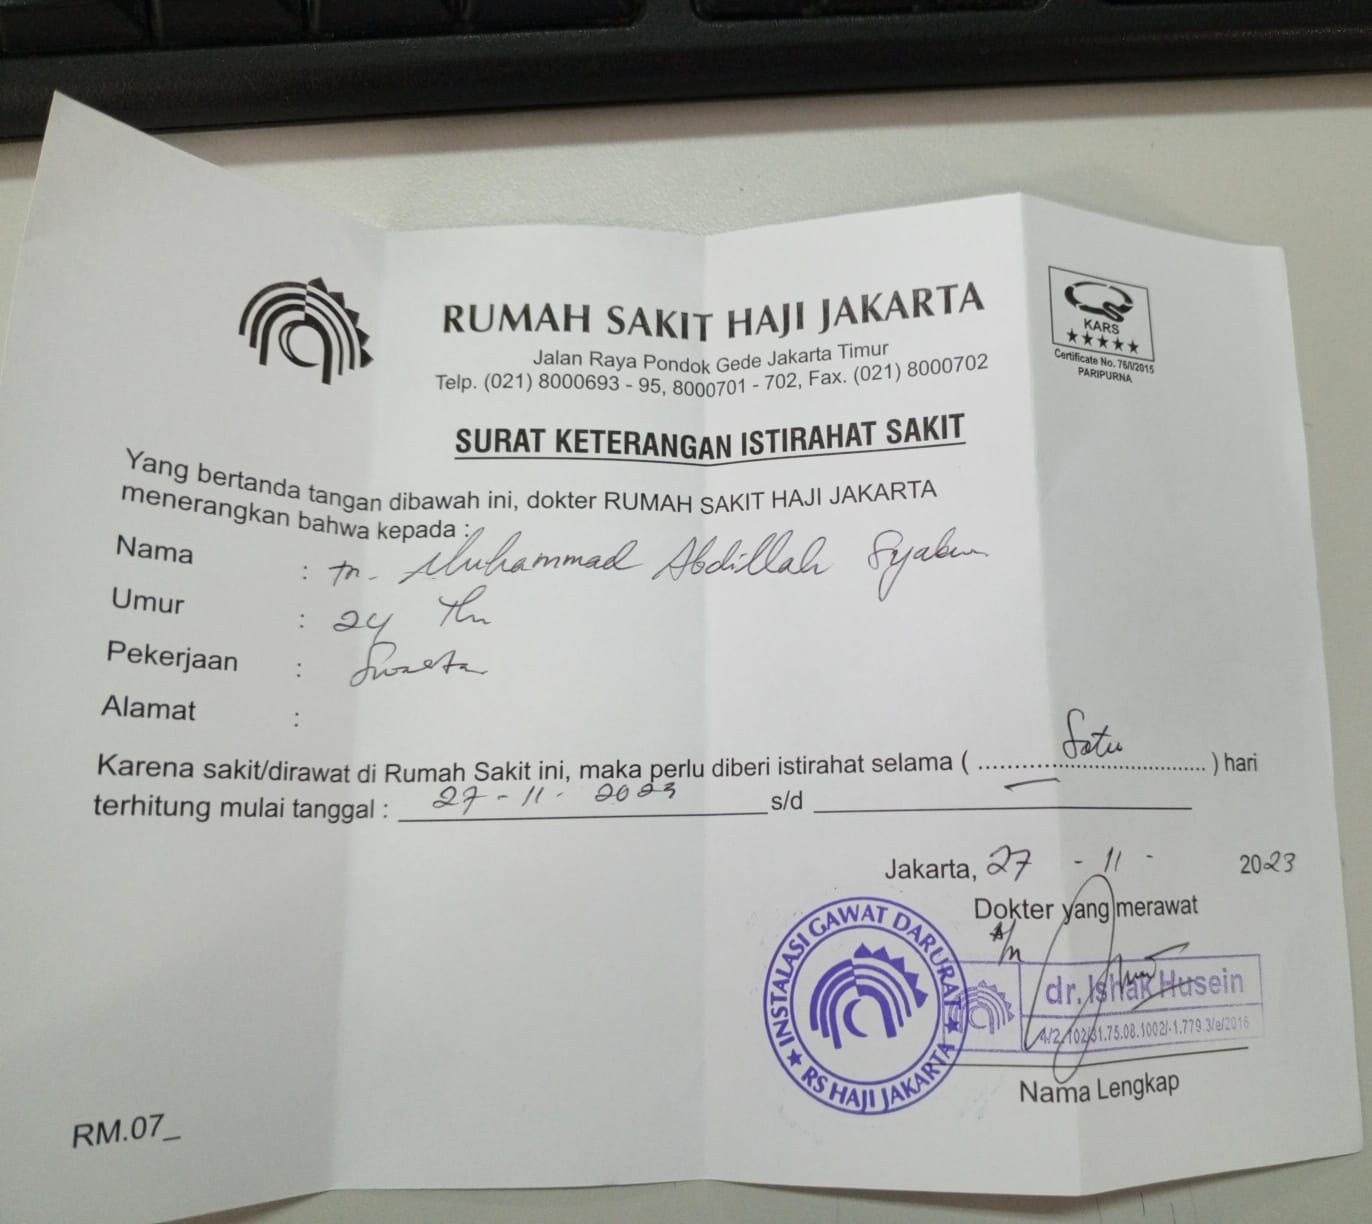 RUMAH SAKIT HAJI JAKARTA
Jalan Raya Pondok Gede Jakarta Timur
Telp. (021) 8000693 - 95, 8000701 - 702, Fax. (021) 8000702
KARS
★★★★★
Certificate No. 76/I/2015
PARIPURNA
SURAT KETERANGAN ISTIRAHAT SAKIT
Yang bertanda tangan dibawah ini, dokter RUMAH SAKIT HAJI JAKARTA
menerangkan bahwa kepada :
Nama : tn. Muhammad Abdillah
Umur : 24 thn
Pekerjaan : Swasta
Alamat :
Karena sakit/dirawat di Rumah Sakit ini, maka perlu diberi istirahat selama ( Satu ) hari
terhitung mulai tanggal : 27 - 11 - 2023 s/d
Jakarta, 27 - 11 - 2023
Dokter yang merawat
★ INSTALASI GAWAT DARURAT ★ RS HAJI JAKARTA
dr. Ishak Husein
Nama Lengkap
RM.07_